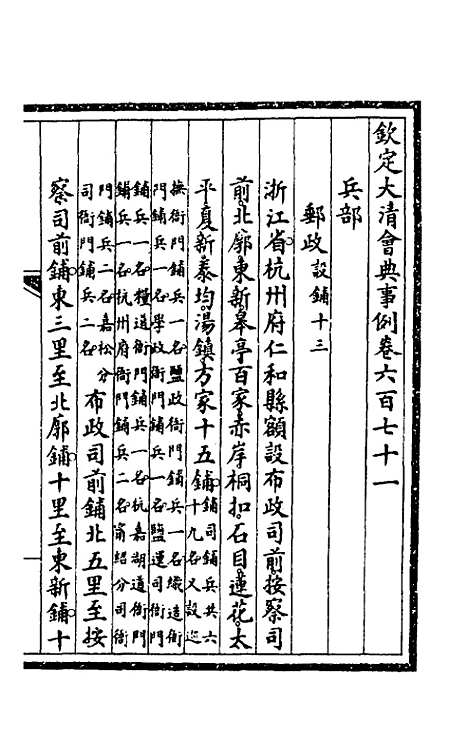 欽定大清會典事例卷六百七十一
兵部
郵政設鋪十三
浙江省杭州府仁和縣額設布政司前按察司
前北廓東新皋亭百家赤岸桐扣石目蓮花太
平夏新泰均湯鎮方家十五鋪鋪司鋪兵共六
十九名又設巡
撫衙門鋪兵一名鹽政衙門鋪兵一名織造衙
門鋪兵一名學政衙門鋪兵一名鹽運司衙門
鋪兵一名糧道衙門鋪兵一名杭嘉湖道衙門
鋪兵一名杭州府衙門鋪兵二名甯紹分司衙
門鋪兵二名嘉松分
司衙門鋪兵二名布政司前鋪北五里至按
察司前鋪東三里至北廓鋪十里至東新鋪十